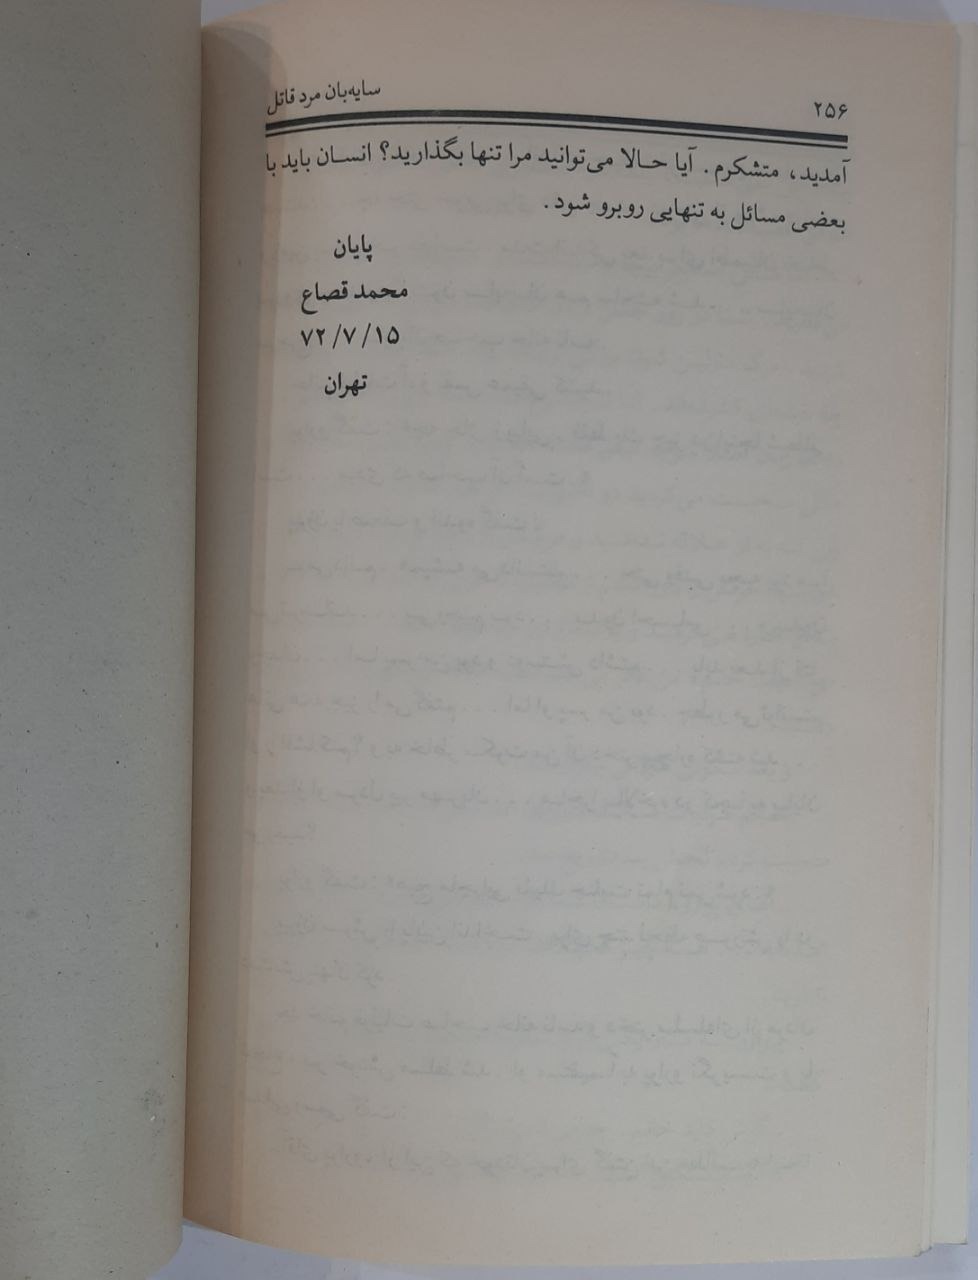 ۲۵۶
سایه‌بان مرد قاتل
آمدید، متشکرم. آیا حالا می‌توانید مرا تنها بگذارید؟ انسان باید با
بعضی مسائل به تنهایی روبرو شود.
پایان
محمد قصاع
۷۲/۷/۱۵
تهران